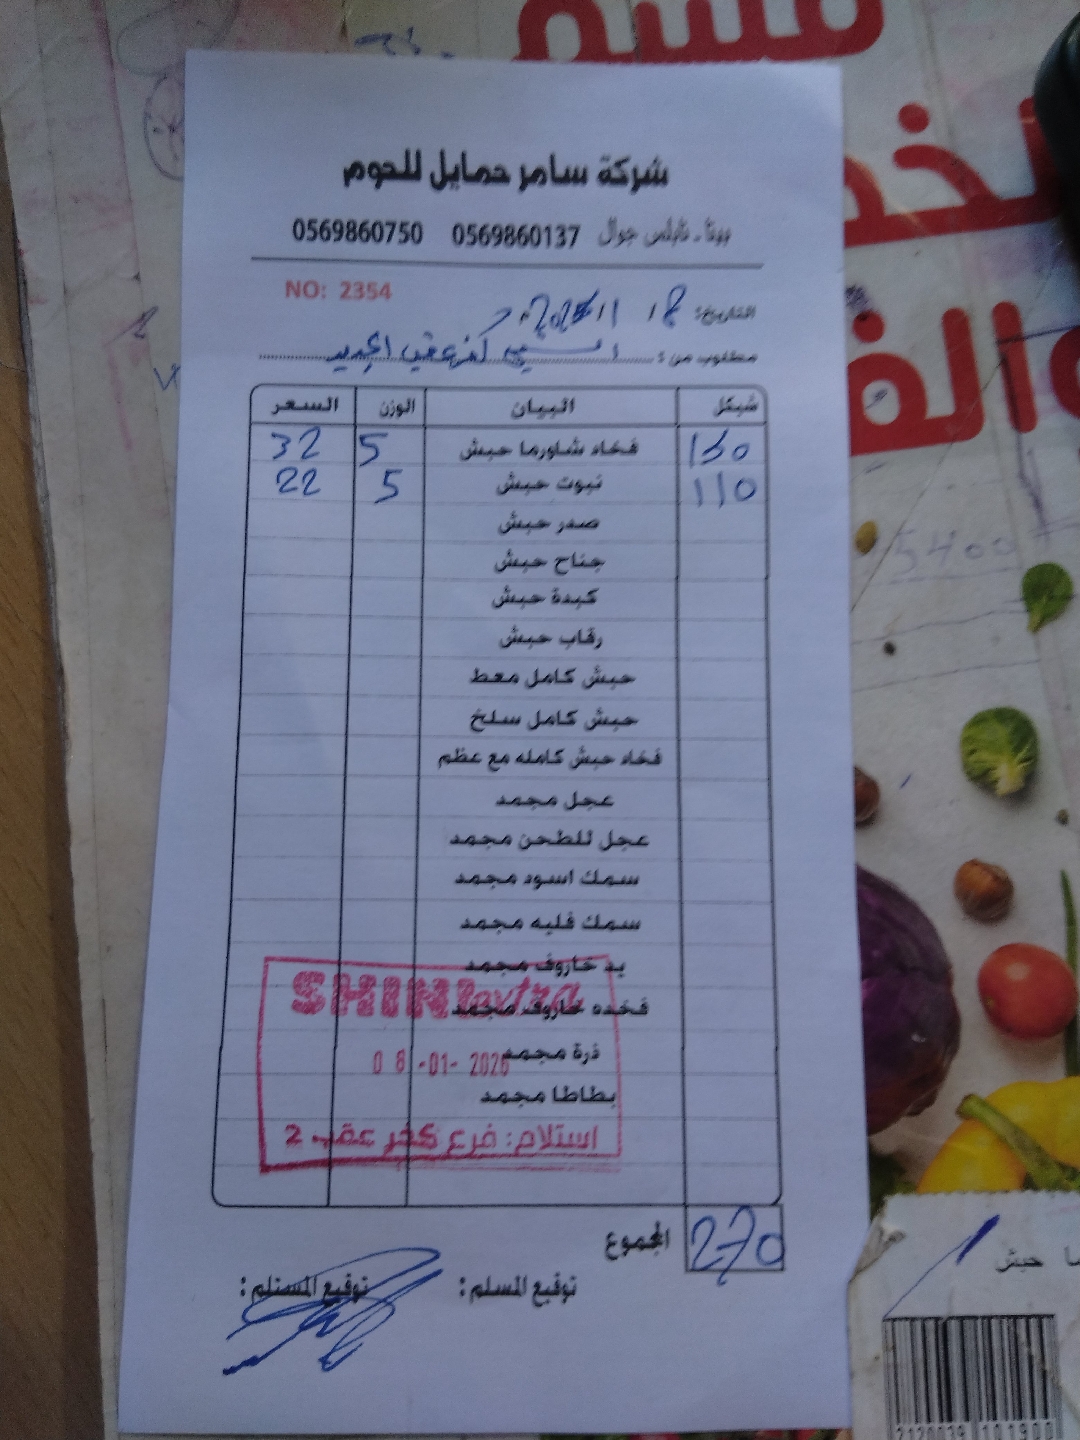 قسم
الخض
والف
شركة سامر حمايل للحوم
بيتا - نابلس جوال 0569860137 0569860750
NO: 2354
التاريخ: 8 / 1 /
مطلوب من : كفر عقب الجديد
شيكل البيان الوزن السعر
160 فخاد شاورما حبش 5 32
110 نبوت حبش 5 22
صدر حبش
جناح حبش
كبدة حبش
رقاب حبش
حبش كامل معط
حبش كامل سلخ
فخاد حبش كامله مع عظم
عجل مجمد
عجل للطحن مجمد
سمك اسود مجمد
سمك فليه مجمد
يد خاروف مجمد
فخده خاروف مجمد
ذرة مجمد
بطاطا مجمد
SHINI extra
08-01-2026
استلام: فرع كفر عقب 2
المجموع 270
توقيع المسلم : توقيع المستلم :
5400
حبش
2120039 101900